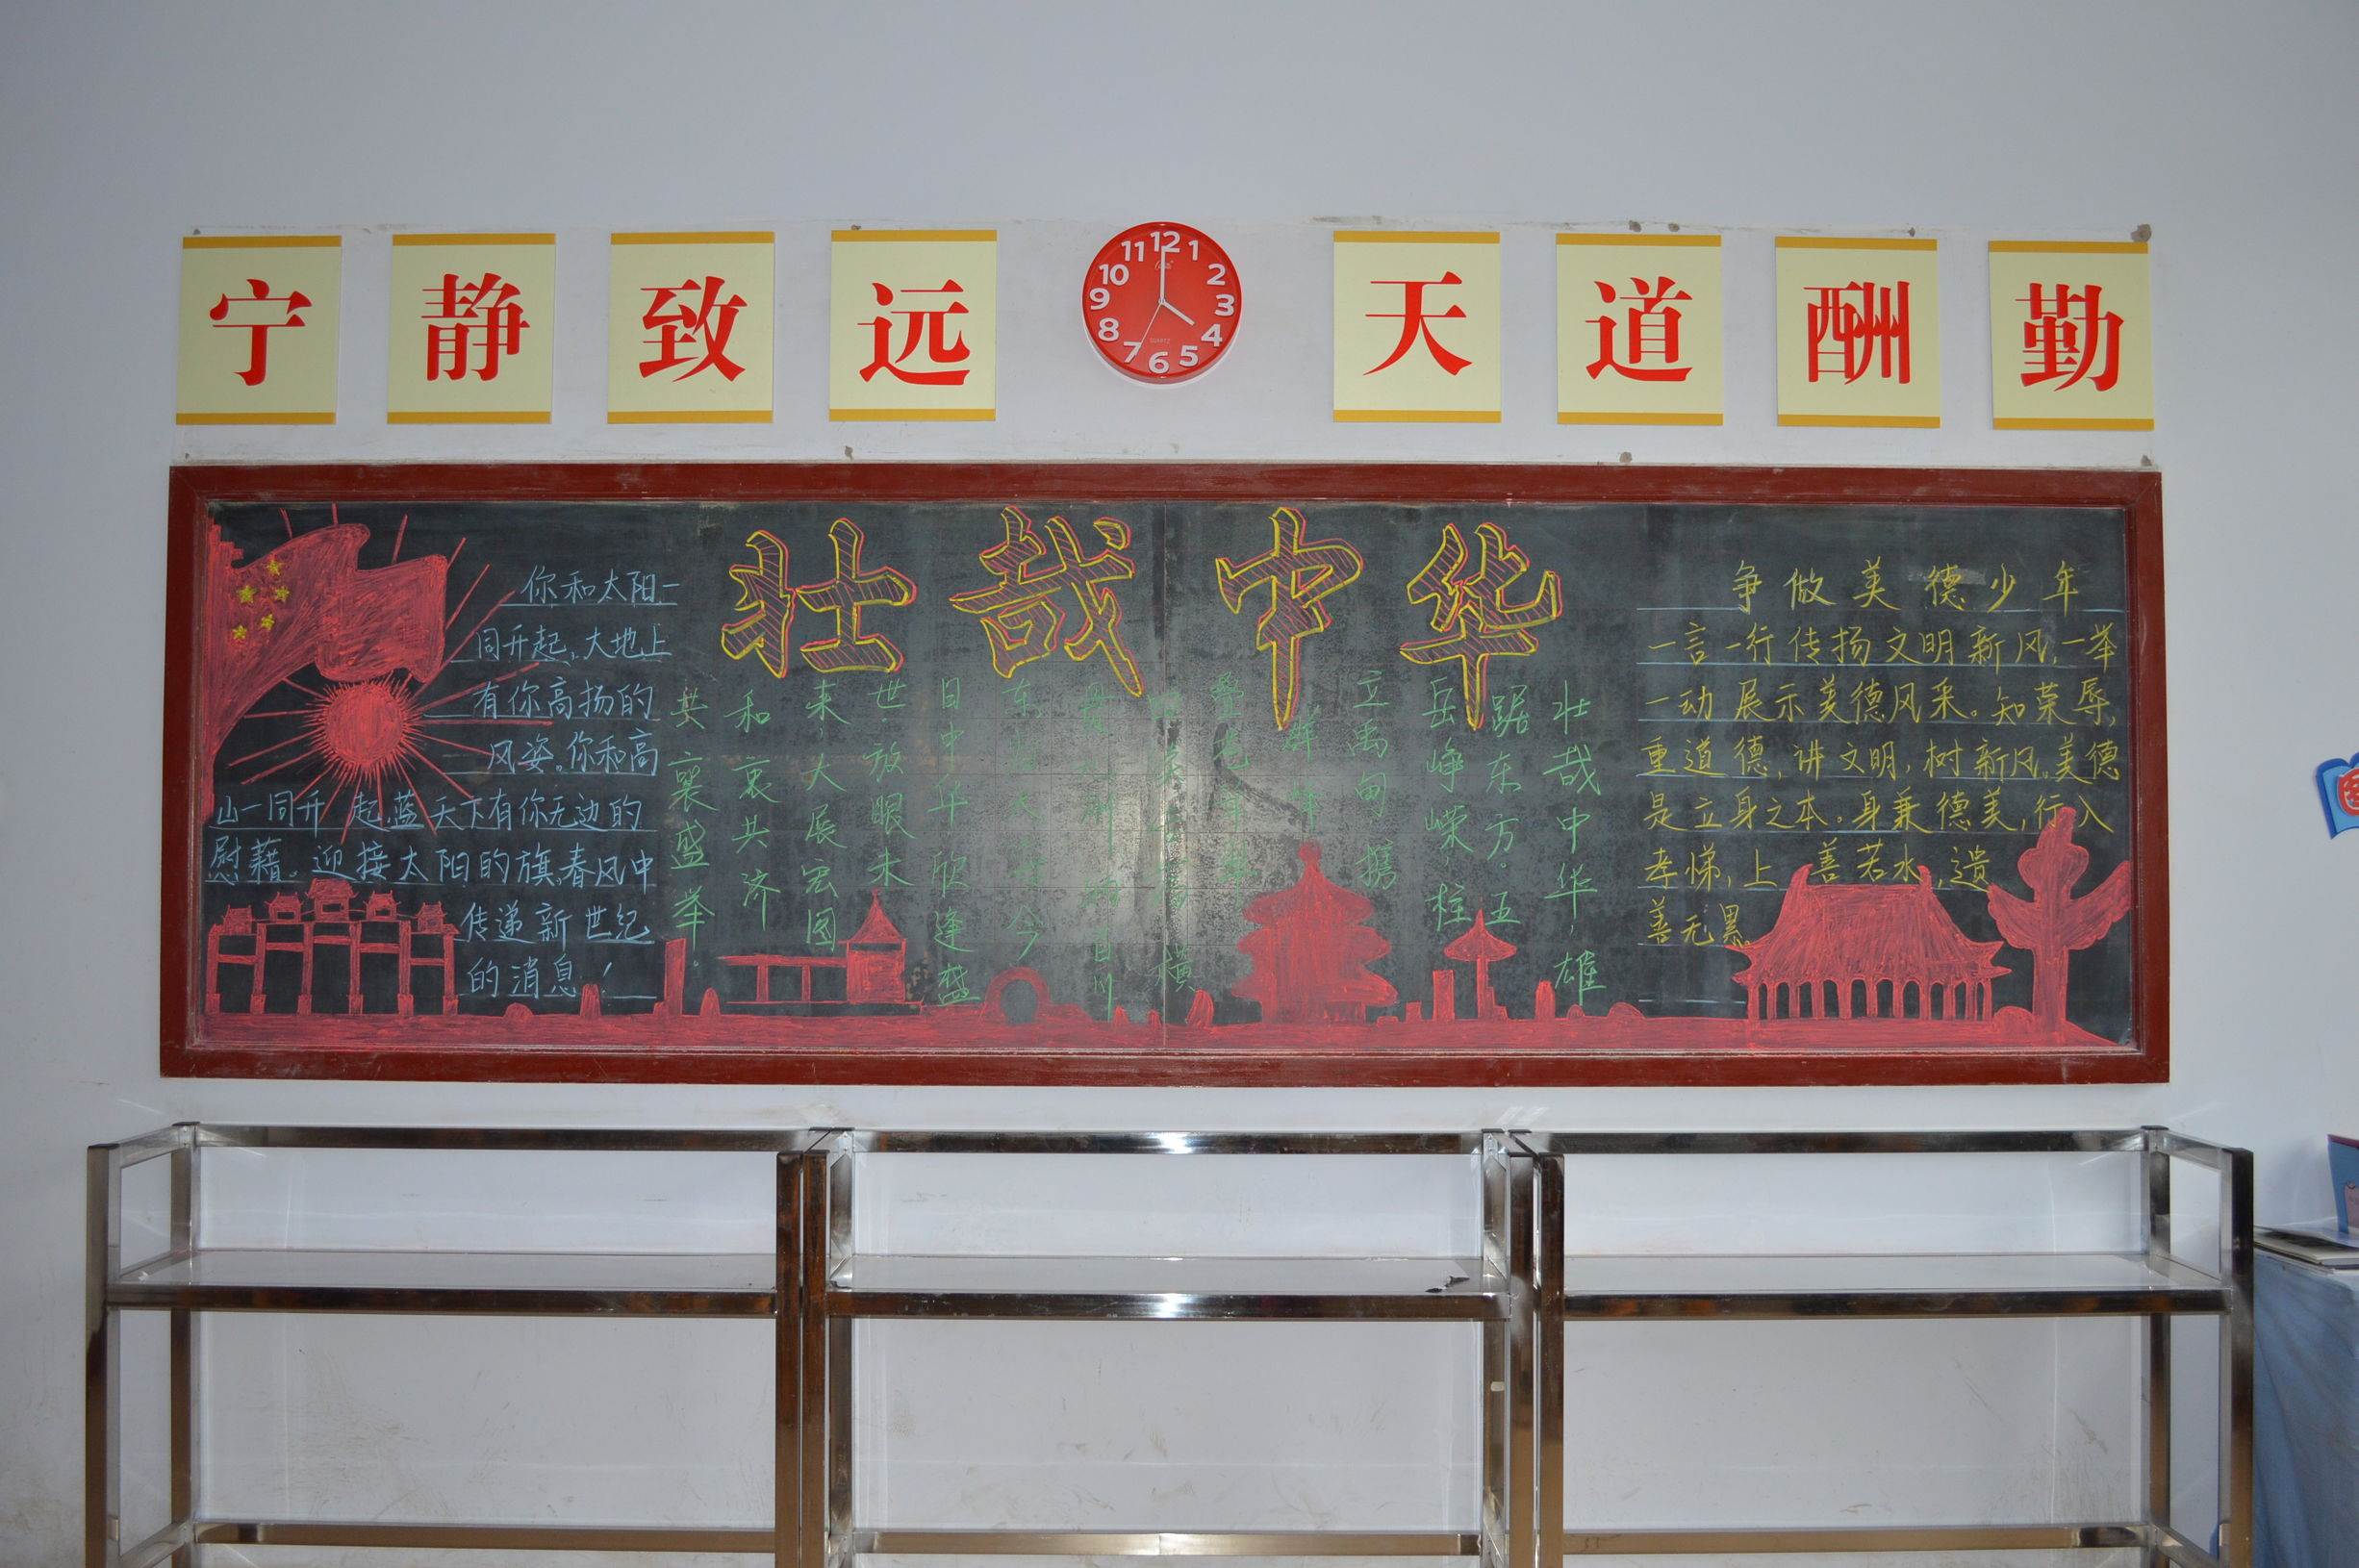 宁静致远
天道酬勤
11 12 1
10 2
9 3
8 4
7 6 5
壮哉中华
你和太阳一
同升起,大地上
有你高扬的
风姿。你和高
山一同升起蓝天下有你无边的
慰藉。迎接太阳的旗,春风中
传递新世纪
的消息!
壮哉中华,雄
踞东方。五
岳峥嵘,柱
立禹甸携
日中华欣逢盛
世放眼未
来大展宏图
和衷共济
共襄盛举。
争做美德少年
一言一行传扬文明新风,一举
一动展示美德风采。知荣辱,
重道德,讲文明,树新风。美德
是立身之本。身兼德美,行入
孝悌,上善若水,遗
善无累